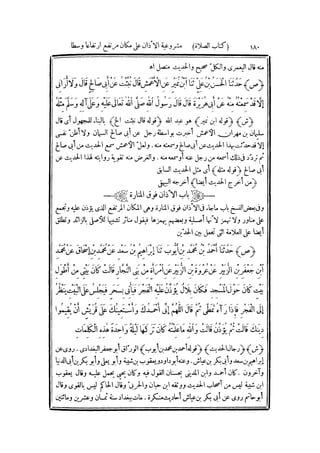 ١٨٠ (كتاب الصلاة) مشروعية الأذان على مكان مرتفع ارتفاعا وسطا
منه قال اليعمرى والكل صحيح والحديث متصل اه
(ص) حَدَّثَنَا الْحَسَنُ بْنُ عَلِىٍّ ثَنَا ابْنُ نُمَيْرٍ عَنِ الْأَعْمَشِ قَالَ نُبِّئْتُ عَنْ أَبِى صَالِحٍ قَالَ وَلَا أُرَانِى
إِلَّا قَدْ سَمِعْتُهُ مِنْهُ عَنْ أَبِى هُرَيْرَةَ قَالَ قَالَ رَسُولُ اللهِ صَلَّى اللهُ تَعَالَى عَلَيْهِ وَعَلَى آلِهِ وَسَلَّمَ مِثْلَهُ
(ش) (قوله ابن نمير) هو عبد الله (قوله قال نبئت الخ) بالبناء للمجهول أى قال
سليمان بن مهران الأعمش أخبرت بواسطة رجل عن أبى صالح السمان ولا أظن نفسى
إلا قد حدثت بهذا الحديث عن أبى صالح وسمعته منه . ولعل الأعمش سمع الحديث من أبى صالح
ثم تردّد فى ذلك أسمعه من رجل عنه أو سمعه منه . والغرض منه تقوية روايته لهذا الحديث عن
أبى صالح (قوله مثله) أى مثل الحديث السابق
(من أخرج الحديث أيضا) أخرجه البيهقى
باب الأذان فوق المنارة
وفى بعض النسخ باب ماجاء فى الأذان فوق المنارة وهى المكان المرتفع الذى يؤذن عليه وتجمع
على مناور ولا تهمز لأنها أصلية وبعضهم يهمزها فيقول منائر تشبيها للأصلى بالزائد وتطلق
أيضا على العلامة التى تجعل بين الحدين
(ص) حَدَّثَنَا أَحْمَدُ بْنُ مُحَمَّدِ بْنِ أَيُّوبَ ثَنَا إِبْرَاهِيمُ بْنُ سَعْدٍ عَنْ مُحَمَّدِ بْنِ إِسْحَاقَ عَنْ مُحَمَّدِ
ابْنِ جَعْفَرِ بْنِ الزُّبَيْرِ عَنْ عُرْوَةَ بْنِ الزُّبَيْرِ عَنِ امْرَأَةٍ مِنْ بَنِى النَّجَّارِ قَالَتْ كَانَ بَيْتِى مِنْ أَطْوَلِ
بَيْتٍ كَانَ حَوْلَ الْمَسْجِدِ فَكَانَ بِلَالٌ يُؤَذِّنُ عَلَيْهِ الْفَجْرَ فَيَأْتِى بِسَحَرٍ فَيَجْلِسُ عَلَى الْبَيْتِ يَنْظُرُ
إِلَى الْفَجْرِ فَإِذَا رَآهُ تَمَطَّى ثُمَّ قَالَ اللَّهُمَّ إِنِّى أَحْمَدُكَ وَأَسْتَعِينُكَ عَلَى قُرَيْشٍ أَنْ يُقِيمُوا
دِينَكَ قَالَتْ ثُمَّ يُؤَذِّنُ قَالَتْ وَاللهِ مَا عَلِمْتُهُ كَانَ تَرَكَهَا لَيْلَةً وَاحِدَةً هٰذِهِ الْكَلِمَاتِ
(ش) (رجال الحديث) (قوله أحمد بن محمد بن أيوب) الورّاق أبو جعفر البغدادى . روى عن
إبراهيم بن سعد وأبى بكر بن عياش . وعنه أبو داود ويعقوب بن شيبة وأبو يعلى وأبو بكر بن أبى الدنيا
وآخرون . كان أحمد وابن المدينى يحسنان القول فيه وكان يحيى يحمل عليه وقال يعقوب
ابن شيبة ليس من أصحاب الحديث ووثقه ابن حبان والحربى وقال الحاكم ليس بالقوى وقال
أبو حاتم روى عن أبى بكر بن عياش أحاديث منكرة . مات ببغداد سنة ثمان وعشرين ومائتين